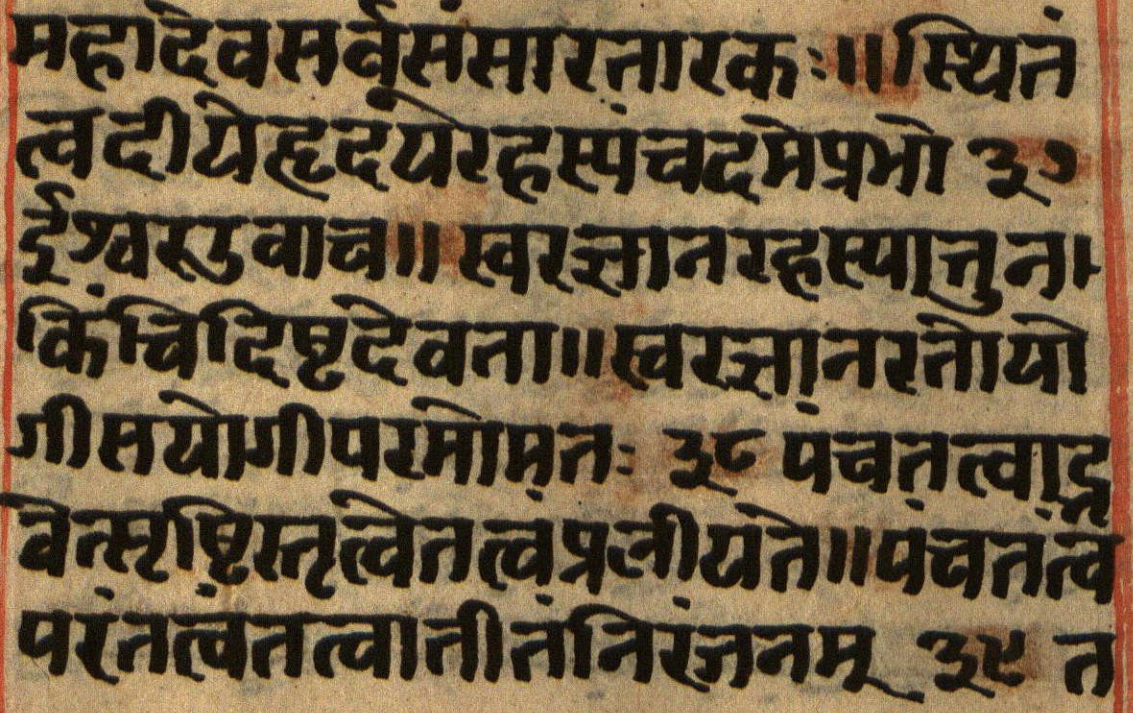 महादेवसर्वसंसारतारकः॥स्थितं
त्वदीयेहृदयेरहस्यंचदमेप्रभो ३७
ईश्वरउवाच॥स्वरज्ञानरहस्यात्तुन।
किंचिदिष्टदेवता॥स्वरज्ञानरतोयो
गीसयोगीपरमोमतः ३८ पंचतत्वाद्भ
वेत्सृष्टिस्तत्वेतत्वंप्रलीयते॥पंचतत्वं
परंतत्वंतत्वातीतंनिरंजनम् ३९ त